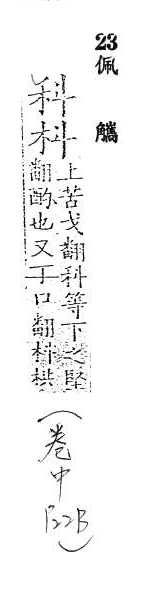 23
佩觿
科枓
上苦戈翻科等下之竪
翻酌也又丁口翻枓栱
(卷中P22B)